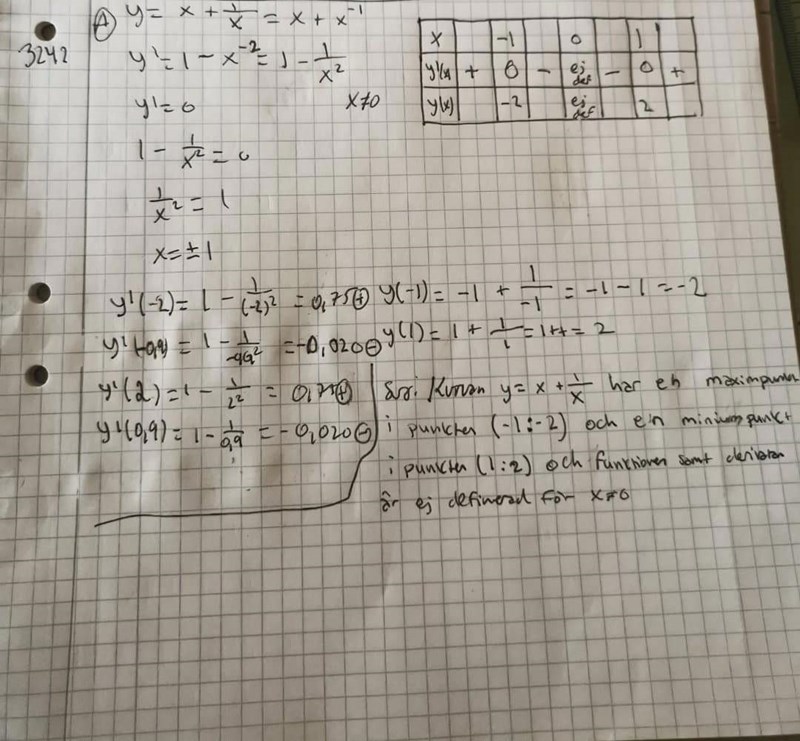 A
3242
y = x + 1/x = x + x^-1
y' = 1 - x^-2 = 1 - 1/x^2
y' = 0 x≠0
1 - 1/x^2 = 0
1/x^2 = 1
x = ±1
x -1 0 1
y'(x) + 0 - ej def - 0 +
y(x) -2 ej def 2
y'(-2) = 1 - 1/(-2)^2 = 0,75 ⊕ y(-1) = -1 + 1/-1 = -1 - 1 = -2
= -0,020 ⊖ y(1) = 1 + 1/1 = 1+1 = 2
y'(2) = 1 - 1/2^2 = 0,75 ⊕
y'(0,9) = 1 - 1/0,9 = -0,020 ⊖
Svar: Kurvan y = x + 1/x har en maximipunkt
i punkten (-1:-2) och en minimipunkt
i punkten (1:2) och funktionen samt derivatan
är ej definerad för